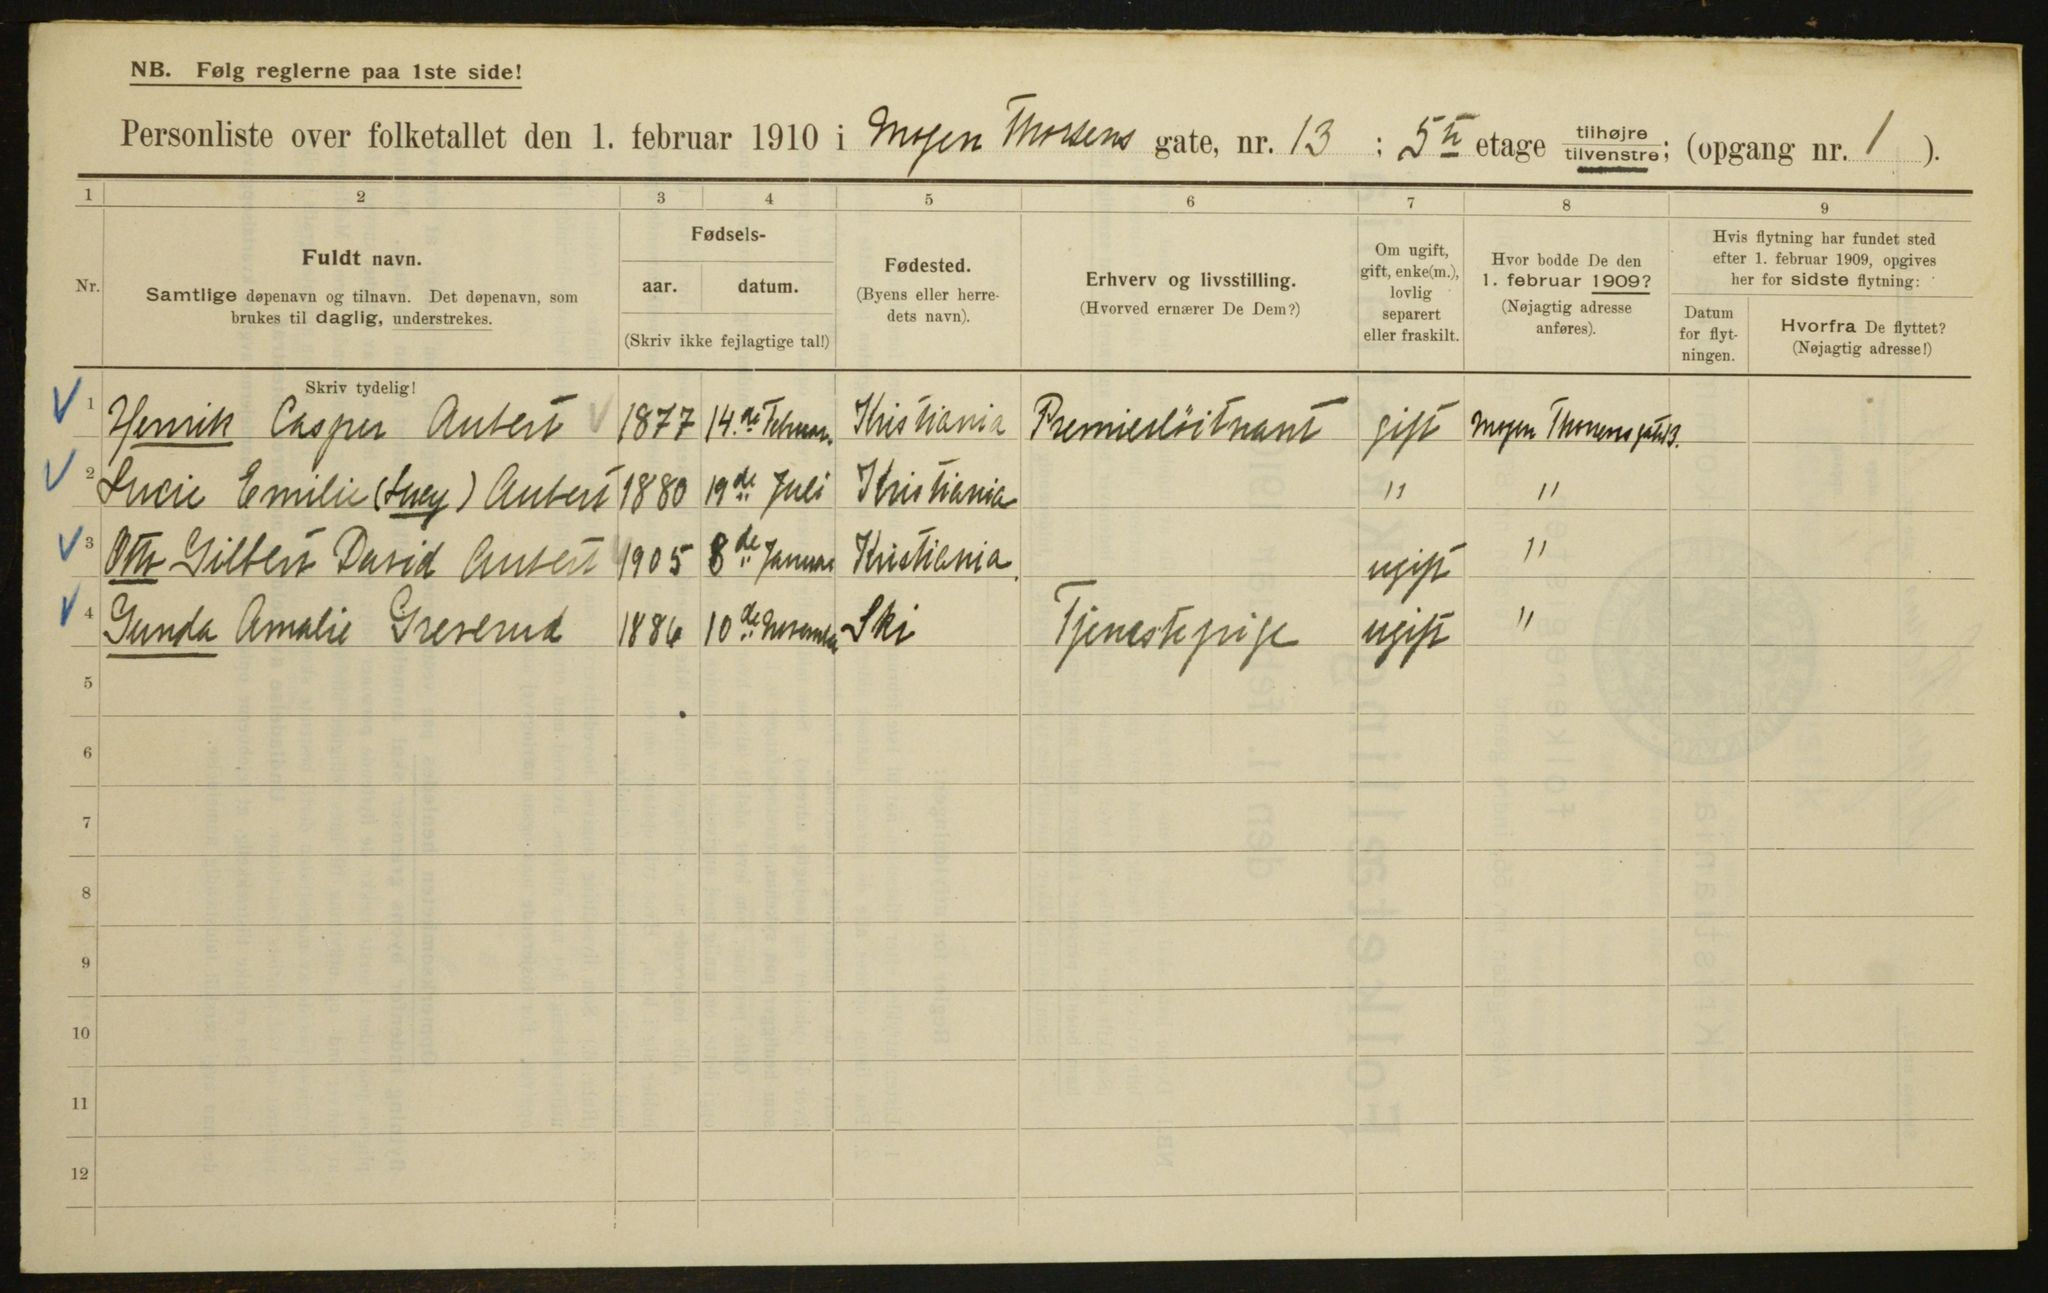 NB. Følg reglerne paa 1ste side!
Personliste over folketallet den 1. februar 1910 i Mogen Thorsens gate, nr. 13 ; 5te etage tilhøjre/tilvenstre; (opgang nr. 1 ).
1 2 3 4 5 6 7 8 9
Nr.
Fuldt navn.
Samtlige døpenavn og tilnavn. Det døpenavn, som
brukes til daglig, understrekes.
Fødsels-
aar. datum.
(Skriv ikke fejlagtige tal!)
Fødested.
(Byens eller herre-
dets navn).
Erhverv og livsstilling.
(Hvorved ernærer De Dem?)
Om ugift,
gift, enke(m.),
lovlig
separert
eller fraskilt.
Hvor bodde De den
1. februar 1909?
(Nøjagtig adresse
anføres).
Hvis flytning har fundet sted
efter 1. februar 1909, opgives
her for sidste flytning:
Datum
for flyt-
ningen.
Hvorfra De flyttet?
(Nøjagtig adresse!)
Skriv tydelig!
1 Henrik Casper Aubert 1877 14.de Februar. Kristiania Premierløitnant gift Mogen Thorsens gate 13.
2 Lucie Emilie (Lucy) Aubert 1880 19de Juli Kristiania " "
3 Otto Gilbert David Aubert 1905 8de Januar Kristiania. ugift "
4 Gunda Amalie Greverud 1886 10de November Ski Tjenestepige ugift "
5
6
7
8
9
10
11
12